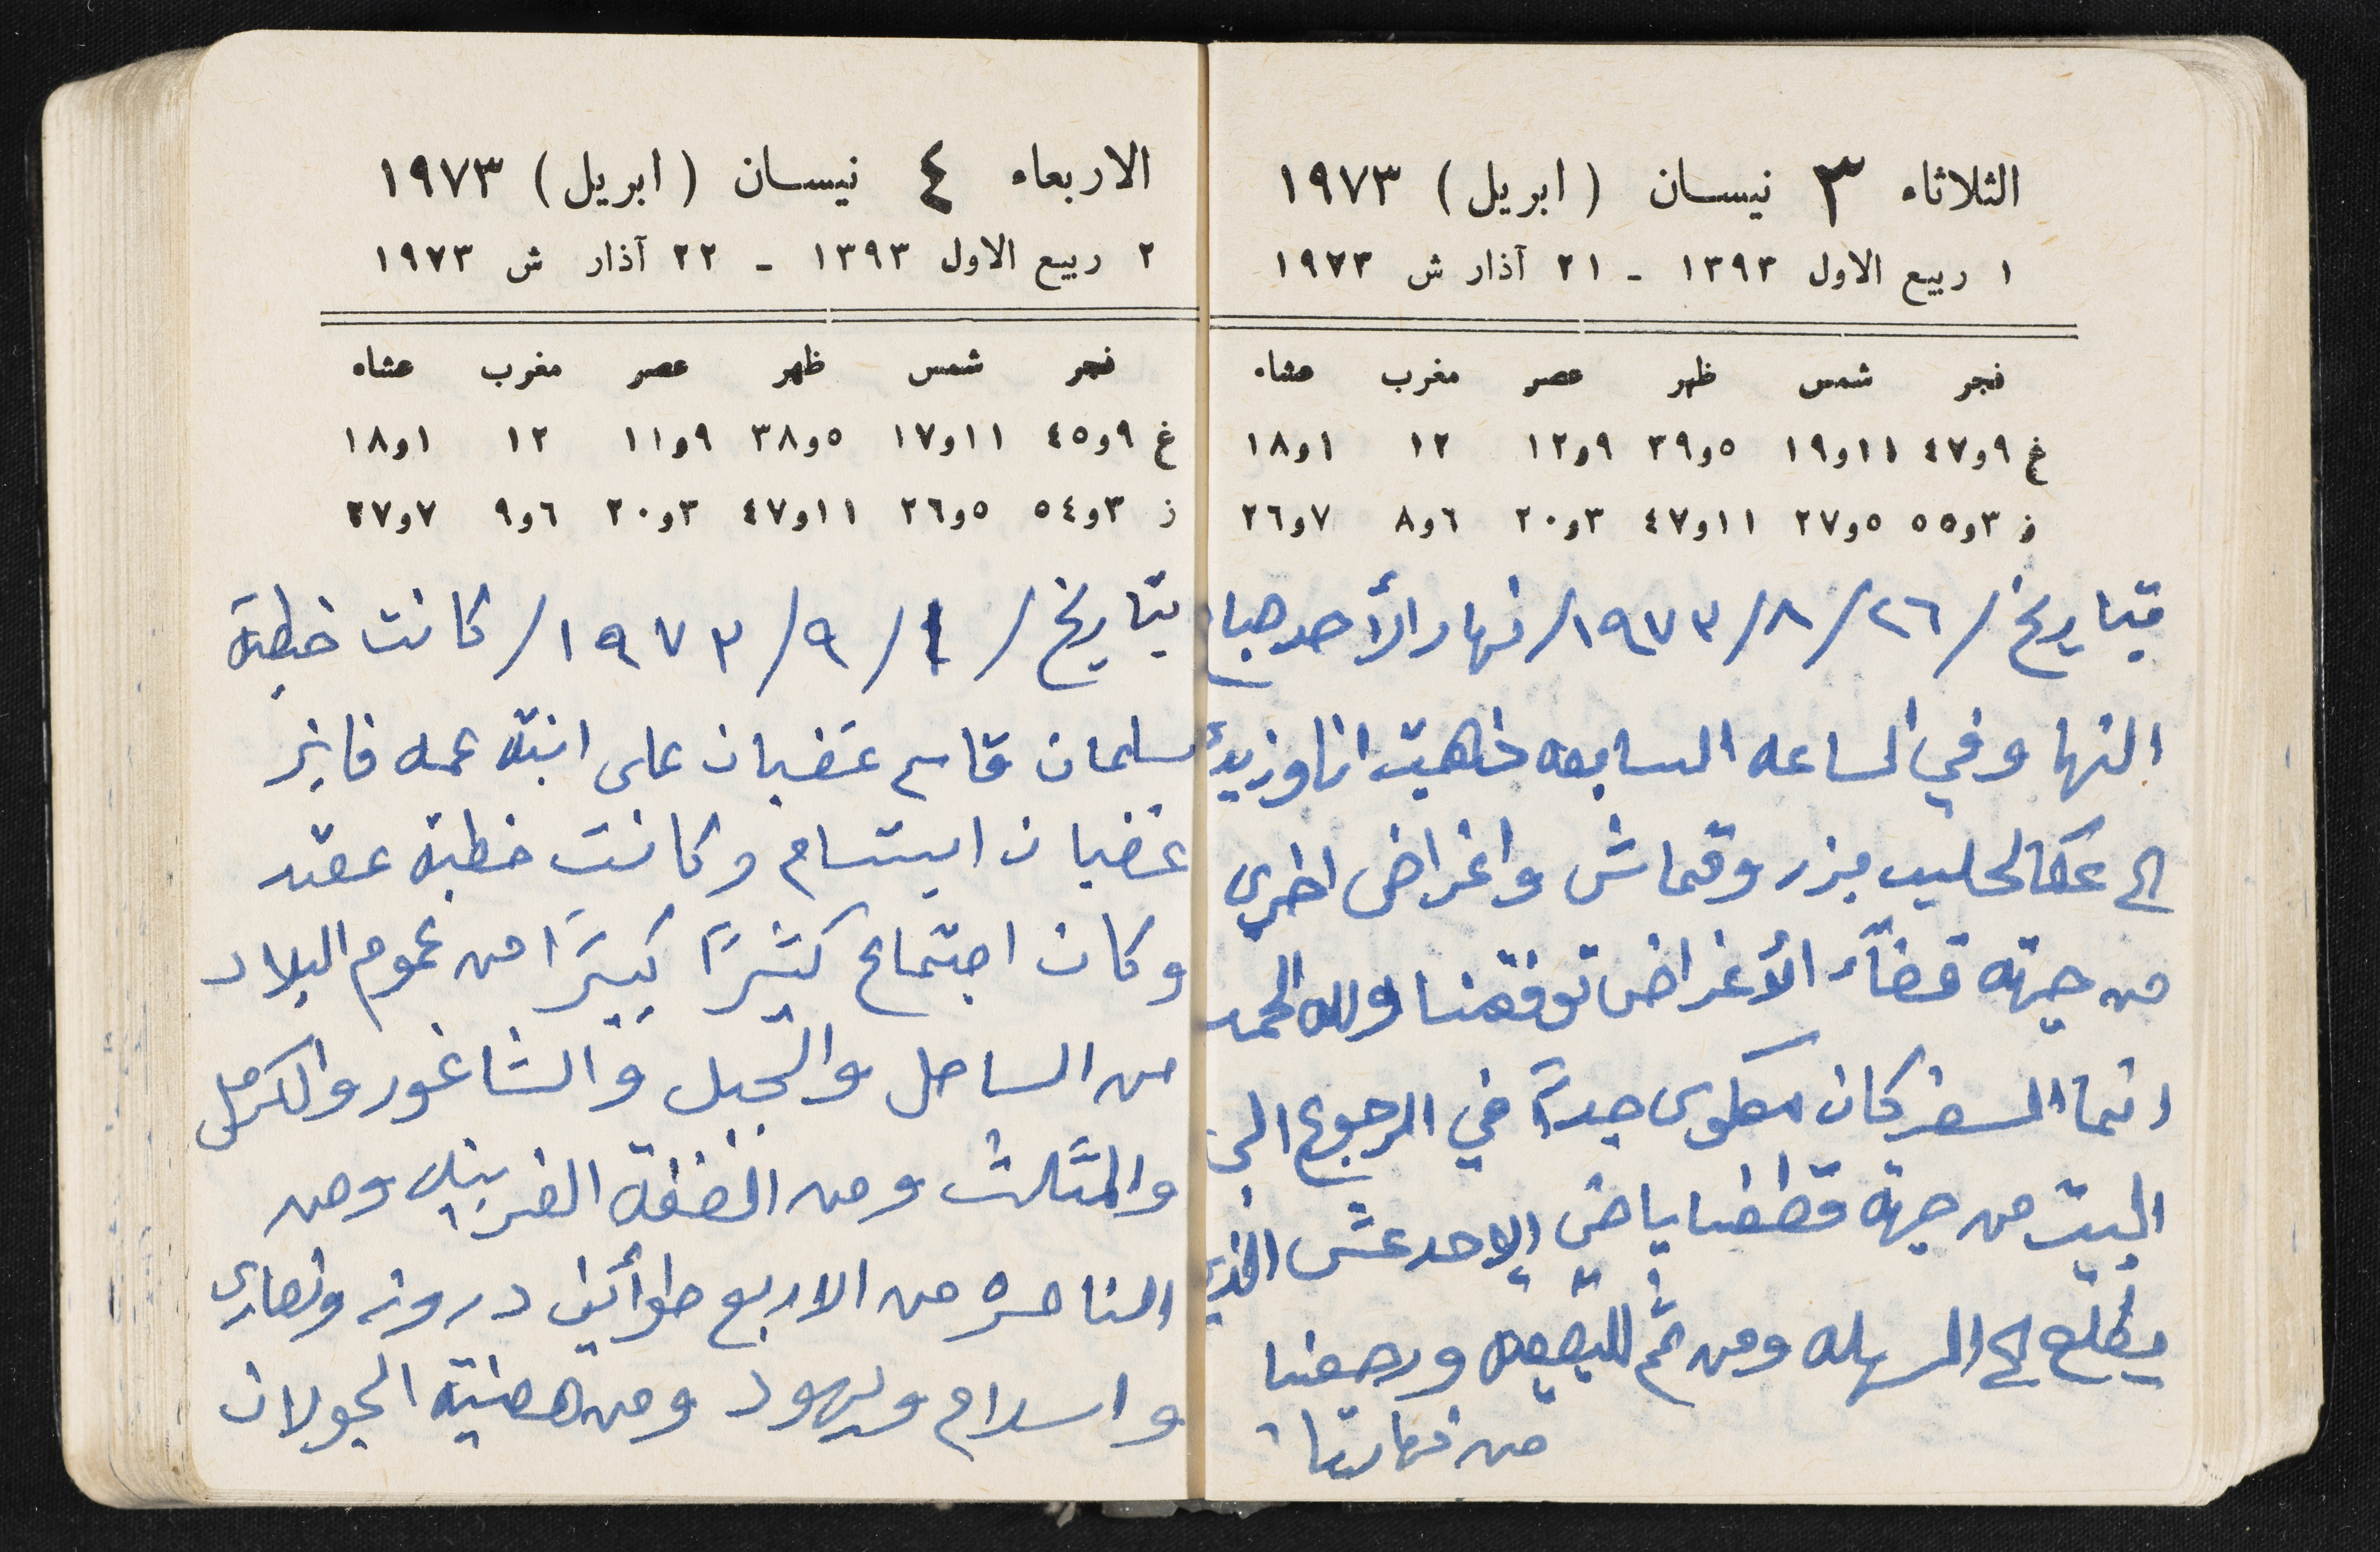 الثلاثاء ٣ نيسان (ابريل) ١٩٧٣
١ ربيع الاول ١٣٩٣ - ٢١ آذار ش ١٩٧٣
فجر شمس ظهر عصر مغرب عشاء
غ ٩و٤٧ ١١و١٩ ٥و٣٩ ٩و١٢ ١٢ ١و١٨
ز ٣و٥٥ ٥و٢٧ ١١و٤٧ ٣و٢٠ ٦و٨ ٧و٢٦
بتاريخ /٢٦/٨/١٩٧٣/ نهار الأحد
النها وفي الساعه السابعه ذهبت انا وزيد
الى عكا لحليب بزر وقماش واغراض اخرى
من جهة قضآء الأغراض توفقنا ولله الحمد
انما السفر كان جداً في الرجوع الى
البيت من جهة الاحد عش الذي
يطلع الى ومن ثم ورجعنا
من نهارنا
الاربعاء ٤ نيسان (ابريل) ١٩٧٣
٢ ربيع الاول ١٣٩٣ - ٢٢ آذار ش ١٩٧٣
فجر شمس ظهر عصر مغرب عشاء
غ ٩و٤٥ ١١و١٧ ٥و٣٨ ٩و١١ ١٢ ١و١٨
ز ٣و٥٤ ٥و٢٦ ١١و٤٧ ٣و٢٠ ٦و٩ ٧و٢٧
بتاريخ /١/٩/١٩٧٣/ كانت خطبة
سلمان قاسم غضبان على ابنة عمه فايز
غضبان ابتسام وكانت خطبة عقد
وكان اجتماع كثيراً كبيراً من عموم البلاد
من الساحل والجبل والشاغور والكرمل
والمثلث ومن الضفة الغربيه ومن
الناصره من الاربع طوأئف دروز ونصارى
واسلام ويهود ومن هضبة الجولان